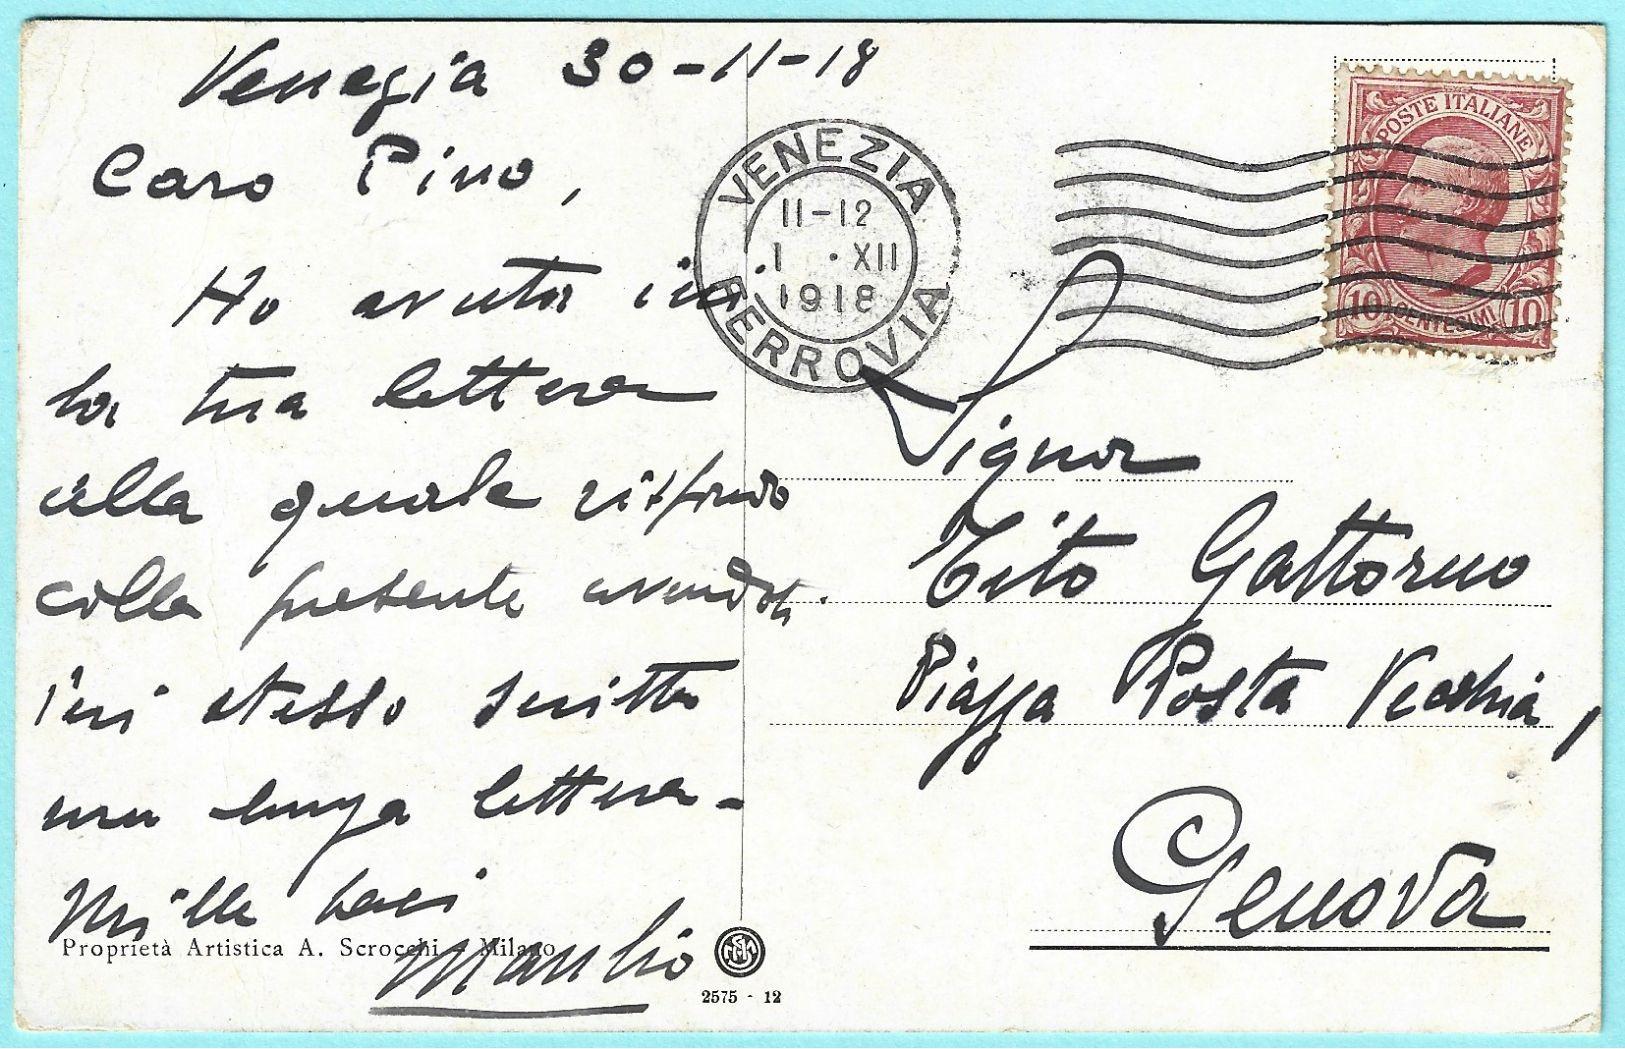 Venezia 30-11-18
Caro Pino,
Ho avuto in
la tua lettera
alla quale rispondo
colla presente avendoti
ieri stesso scritto
una lunga lettera -
Mille baci
Manlio
Proprietà Artistica A. Scrocchi - Milano
2575 - 12
VENEZIA
11-12
1 · XII
1918
FERROVIA
POSTE ITALIANE
10 CENTESIMI 10
Signor
Tito Gattorno
Piazza Posta Vecchia,
Genova